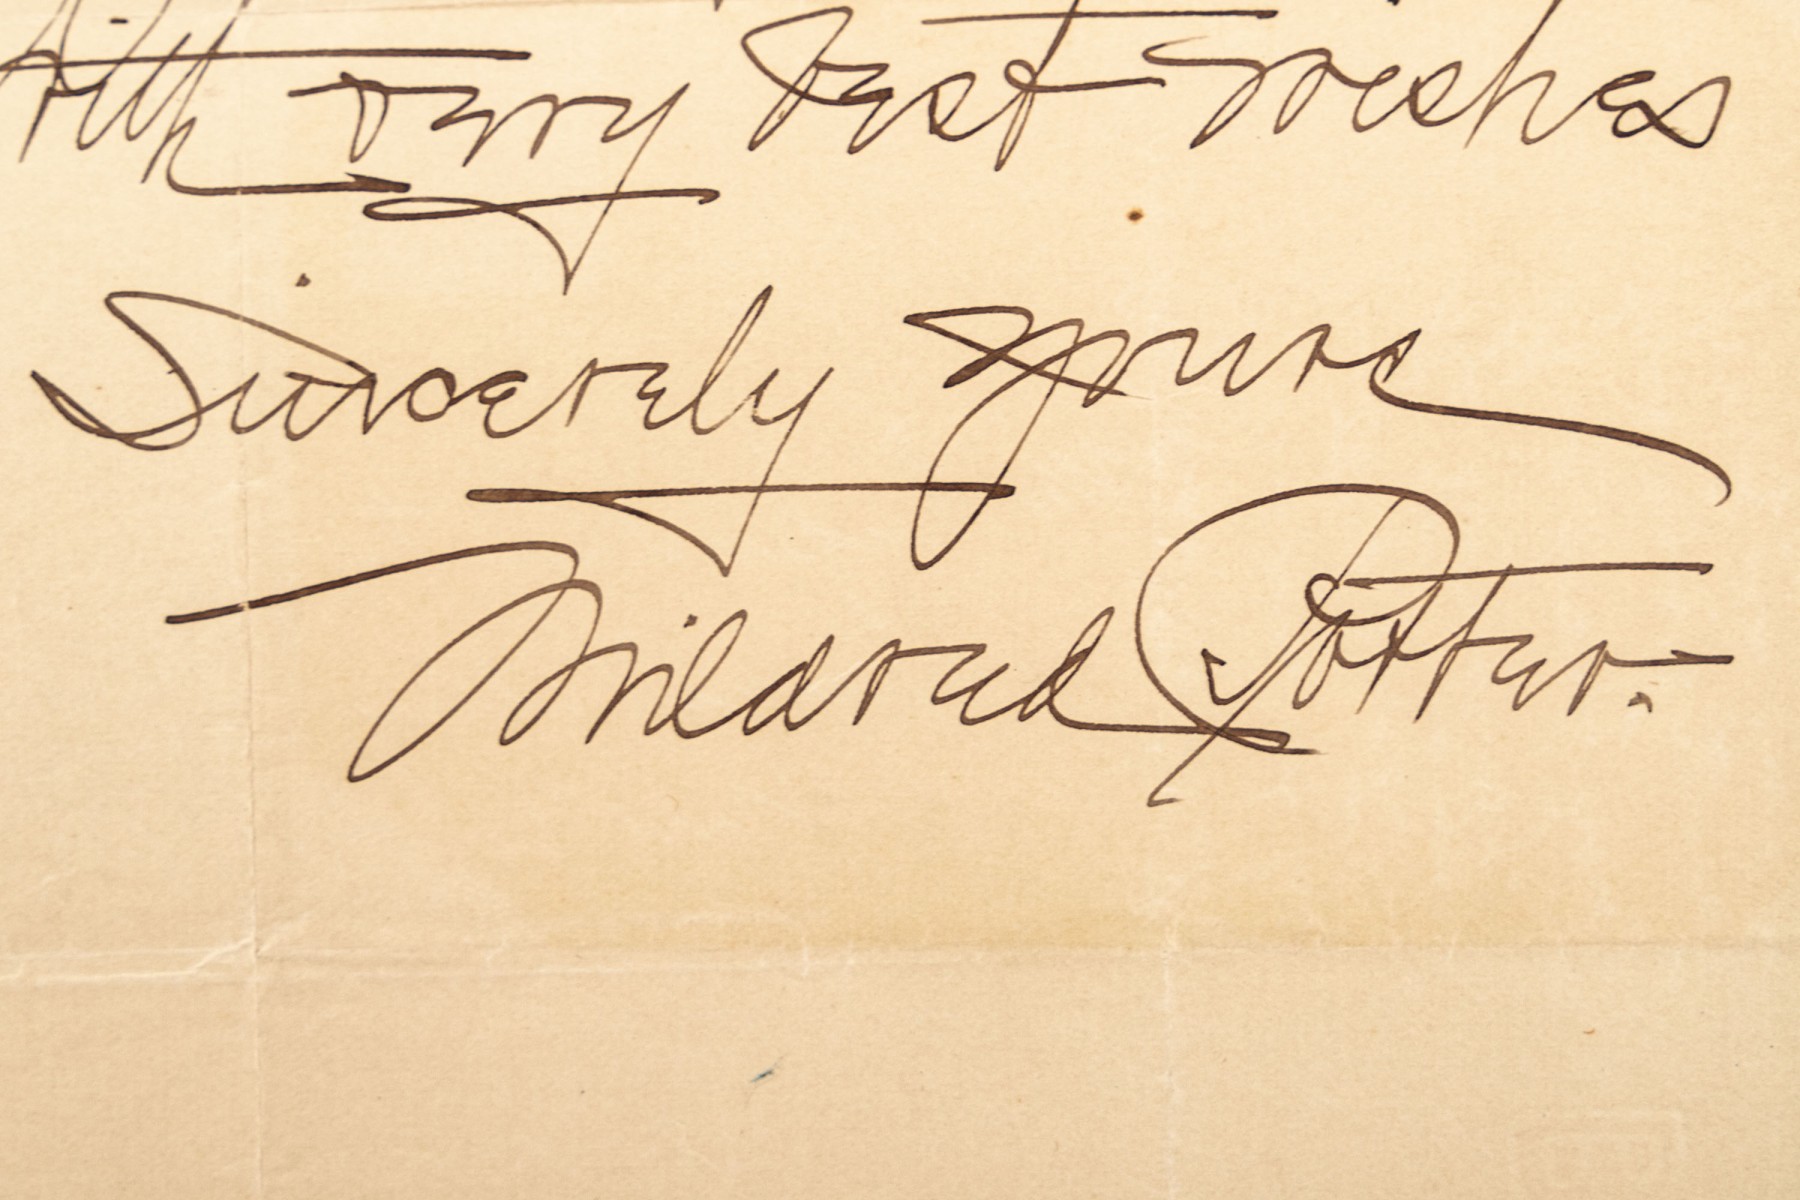 With very best wishes
Sincerely yours
Mildred Potter.